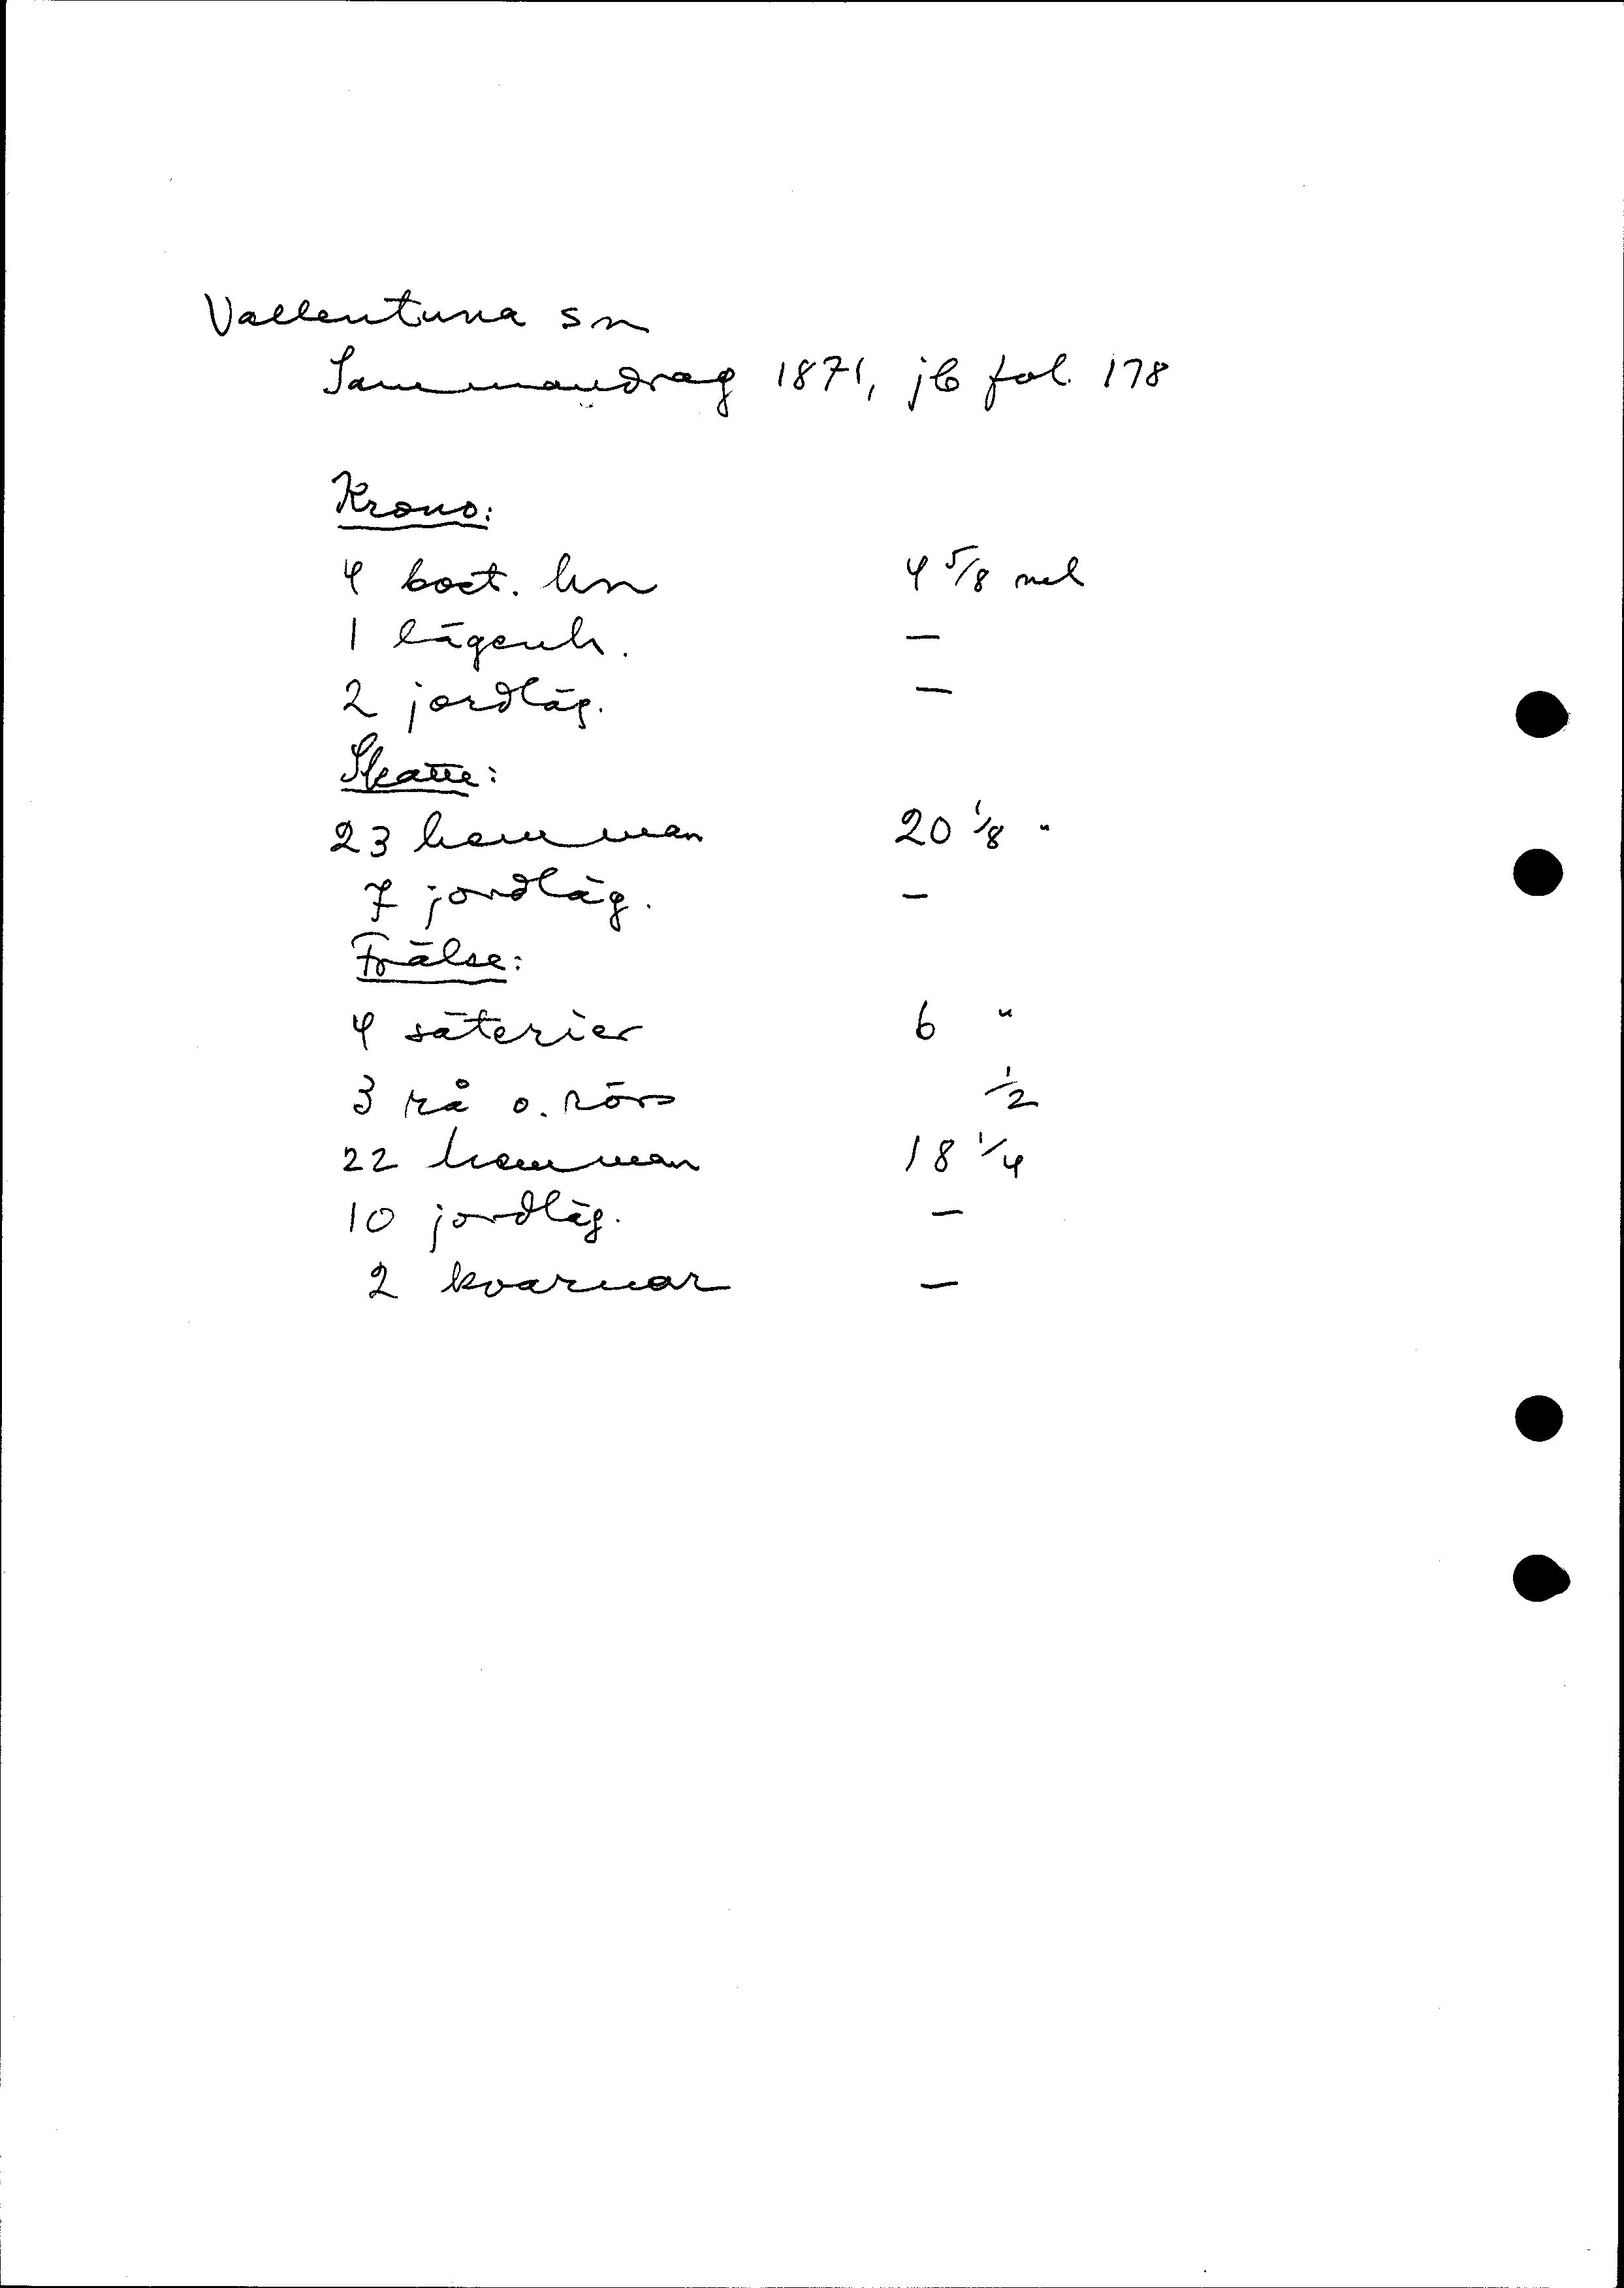 Vallentuna sn
Sammandrag 1871, jb fol. 178
Krono:
4 bost. hn 4 5/8 mel
1 lägenh. —
2 jordläg. —
Skatte:
23 hemman 20 1/8 "
7 jordläg. —
Frälse:
4 säterier 6 "
3 rå o. rörs 1/2
22 hemman 18 1/4
10 jordläg. —
2 kvarnar —